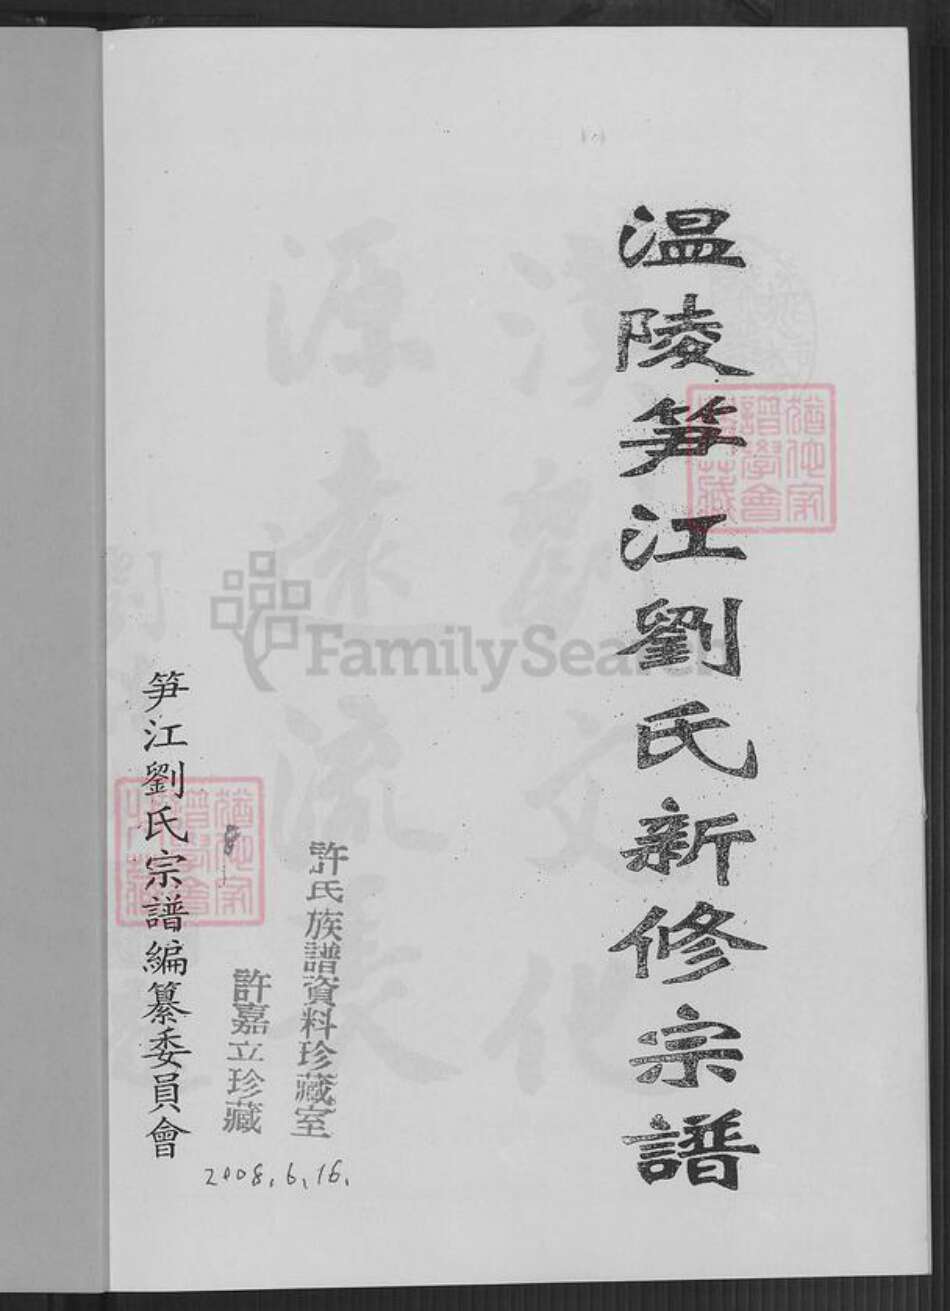 温陵笋江劉氏新修宗譜
許氏族譜資料珍藏室
許嘉立珍藏
2008.6.16.
笋江劉氏宗譜編纂委員會
FamilySearch